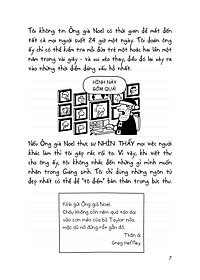 Tôi không tin Ông già Noel có thời gian để mắt đến
tất cả mọi người suốt 24 giờ một ngày. Tôi đoán ông
ấy chỉ có thể kiểm tra mỗi đứa trẻ một hoặc hai lần một
năm trong vài giây - và xui xẻo thay, điều đó lại xảy ra
vào những thời điểm đáng xấu hổ nhất.
HÌNH NÀY
GỚM QUÁ!
Nếu Ông già Noel thực sự NHÌN THẤY mọi việc người
khác làm thì tôi gặp rắc rối to. Vì vậy, khi viết thư
cho ông ấy, tôi không nhắc đến những gì mình muốn
nhân trong Giáng sinh. Tôi chỉ dùng những ngôn từ
đẹp nhất có thể để "tô điểm" bản thân trong bức thư.
Kính gửi Ông già Noel,
Cháu không còn ném quả táo dại
vào con mèo của bà Taylor nữa,
mặc dù nó đứng rất gần đó.
Thân ái
Greg Heffley
7